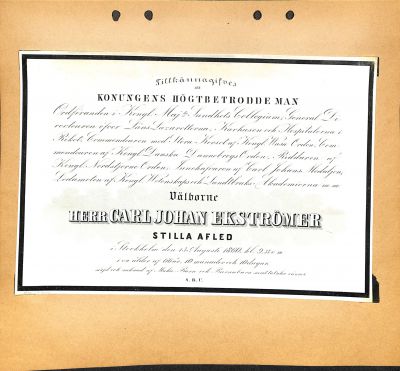 Tillkännagifves
att
KONUNGENS HÖGTBETRODDE MAN
Ordföranden i Kongl. Maj:ts Sundhets Collegium, General Di-
recteuren öfver Läns Lazaretterna, Kurhusen och Hospitalerna i
Riket, Commendeuren med Stora Korset af Kongl. Wasa Orden, Com-
mendeuren af Kongl. Danska Dannebrogs Orden, Riddaren af
Kongl. Nordstjerne Orden, Innehafvaren af Carl Johans Medaljen,
Ledamoten af Kongl. Wetenskaps och Landtbruks Akademierna m. m.
Välborne
HERR CARL JOHAN EKSTRÖMER
STILLA AFLED
i Stockholm den 15 Augusti 1860, kl. 9 f. m.
i en ålder af 10 månader och dagar,
af Maka, Barn och Barnabarn samt talrika vänner.
S. B. U.